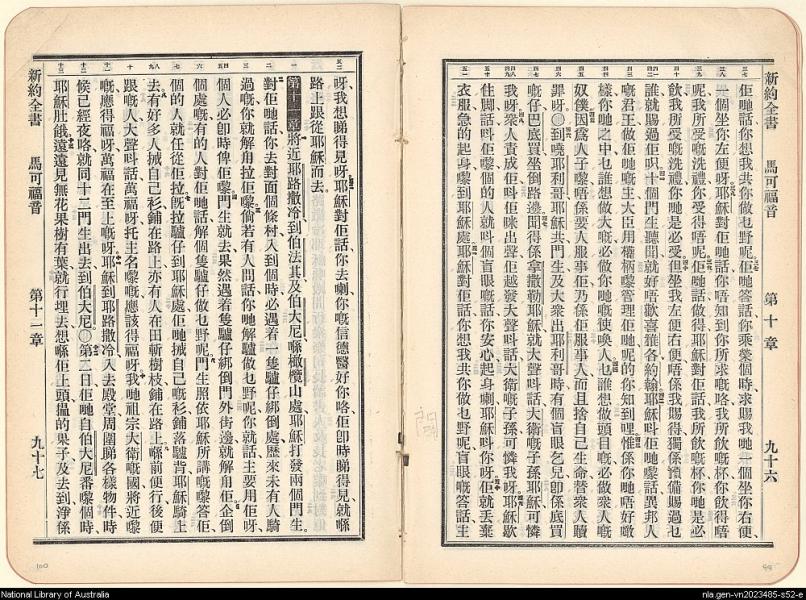 新約全書 馬可福音 第十章 九十六
佢哋話你想我共你做乜野呢佢哋答話你乘榮個時求賜我哋一個坐你右便
一個坐你左便呀耶穌對佢哋話你唔知到你所求嘅咯我所飲嘅杯你飲得唔
呢我所受嘅洗禮你受得唔呢佢哋話做得耶穌對佢話我所飲嘅杯你哋是必
飲我所受嘅洗禮你哋是必受但坐我左便右便唔係我賜得獨係預備賜過乜
誰就賜過佢呮十個門生聽聞就好唔歡喜雅各約翰耶穌料佢哋嚟話異邦人
嘅君王做佢哋嘅主大臣用權柄嚟管理佢哋呢的你知到哩惟係你哋唔好噉
樣你哋之中乜誰想做大嘅必做你哋嘅使喚人乜誰想做頭目嘅必做衆人嘅
奴僕因爲人子嚟唔係要人服事佢乃係佢服事人而且捨自己生命替衆人贖
罪呀〇到曉耶利哥耶穌共門生及大衆出耶利哥時有個盲眼乞兒即係底買
嘅仔巴底買坐倒路邊聞得係拿撒勒耶穌就大聲料話大衛嘅子孫耶穌可憐
我呀衆人責成佢料佢咪出聲佢越發大聲料話大衛嘅子孫可憐我呀耶穌歇
住脚話料佢嚟個的人就料個盲眼嘅話你安心起身喇耶穌料你呀佢就丟葉
衣服急的起身嚟到耶穌處耶穌對佢話你想我共你做乜野呢盲眼嘅答話主
呀我想睇得見呀耶穌對佢話你去喇你嘅信德醫好你咯佢卽時睇得見就喺
路上跟從耶穌而去
第十一章將近耶路撒冷到伯法其及伯大尼喺橄欖山處耶穌打發兩個門生
對佢哋話你去對面個條村入到個時必遇着一隻驢仔綁倒處歷來未有人騎
過嘅你就解甪拉佢嚟倘若有人問話你哋解驢做乜野呢你就話主要用佢呀
個人必卽時俾佢嚟門生就去果然遇着隻驢仔綁倒門外街邊就解甪佢企倒
個處嘅有的人對佢哋話解個隻驢仔做乜野呢門生照依耶穌所講嘅嚟答佢
個的人就任從佢拉旣拉驢仔到耶穌處佢哋搣自己嘅衫鋪落驢背耶穌騎上
去有好多人搣自己衫鋪在路上亦有人在田斬樹枝鋪在路上喺前便行後便
跟嘅人大聲料話萬福呀托主名嚟嘅應該得福呀我哋祖宗大衛嘅國將近嚟
嘅應得福呀萬福在至上嘅呀耶穌到耶路撒冷入去殿堂周圍睇各樣物件時
候已經夜咯就同十二門生出去到伯大尼〇第二日佢哋自伯大尼番嚟個時
耶穌肚餓遠遠見無花果樹有葉就行埋去想喺佢上頭搵的果子及去到淨係
新約全書 馬可福音 第十一章 九十七
National Library of Australia
nla.gen-vn2023485-s52-e